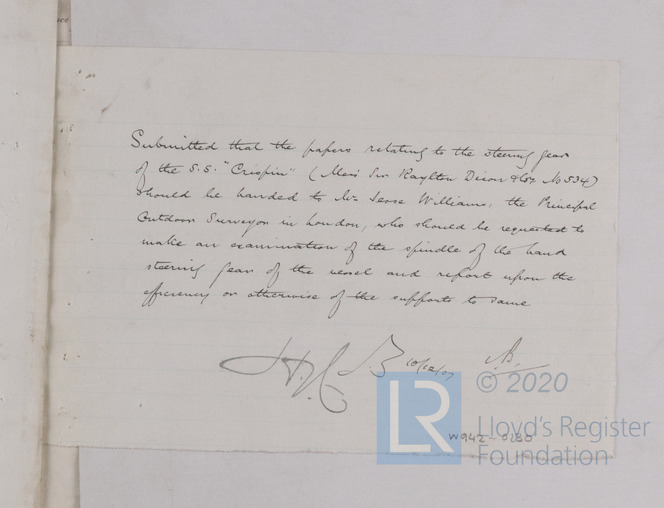 Submitted that the papers relating to the steering gear
of the S.S. "Crispin" (Mess Sir Raylton Dixon & Co's No 534)
should be handed to Mr Jesse Williams, the Principal
Outdoor Surveyor in London, who should be requested to
make an examination of the spindle of the hand
steering gear of the vessel and report upon the
efficiency or otherwise of the supports to same
10/12/07
W942-0130
LR
© 2020
Lloyd's Register
Foundation